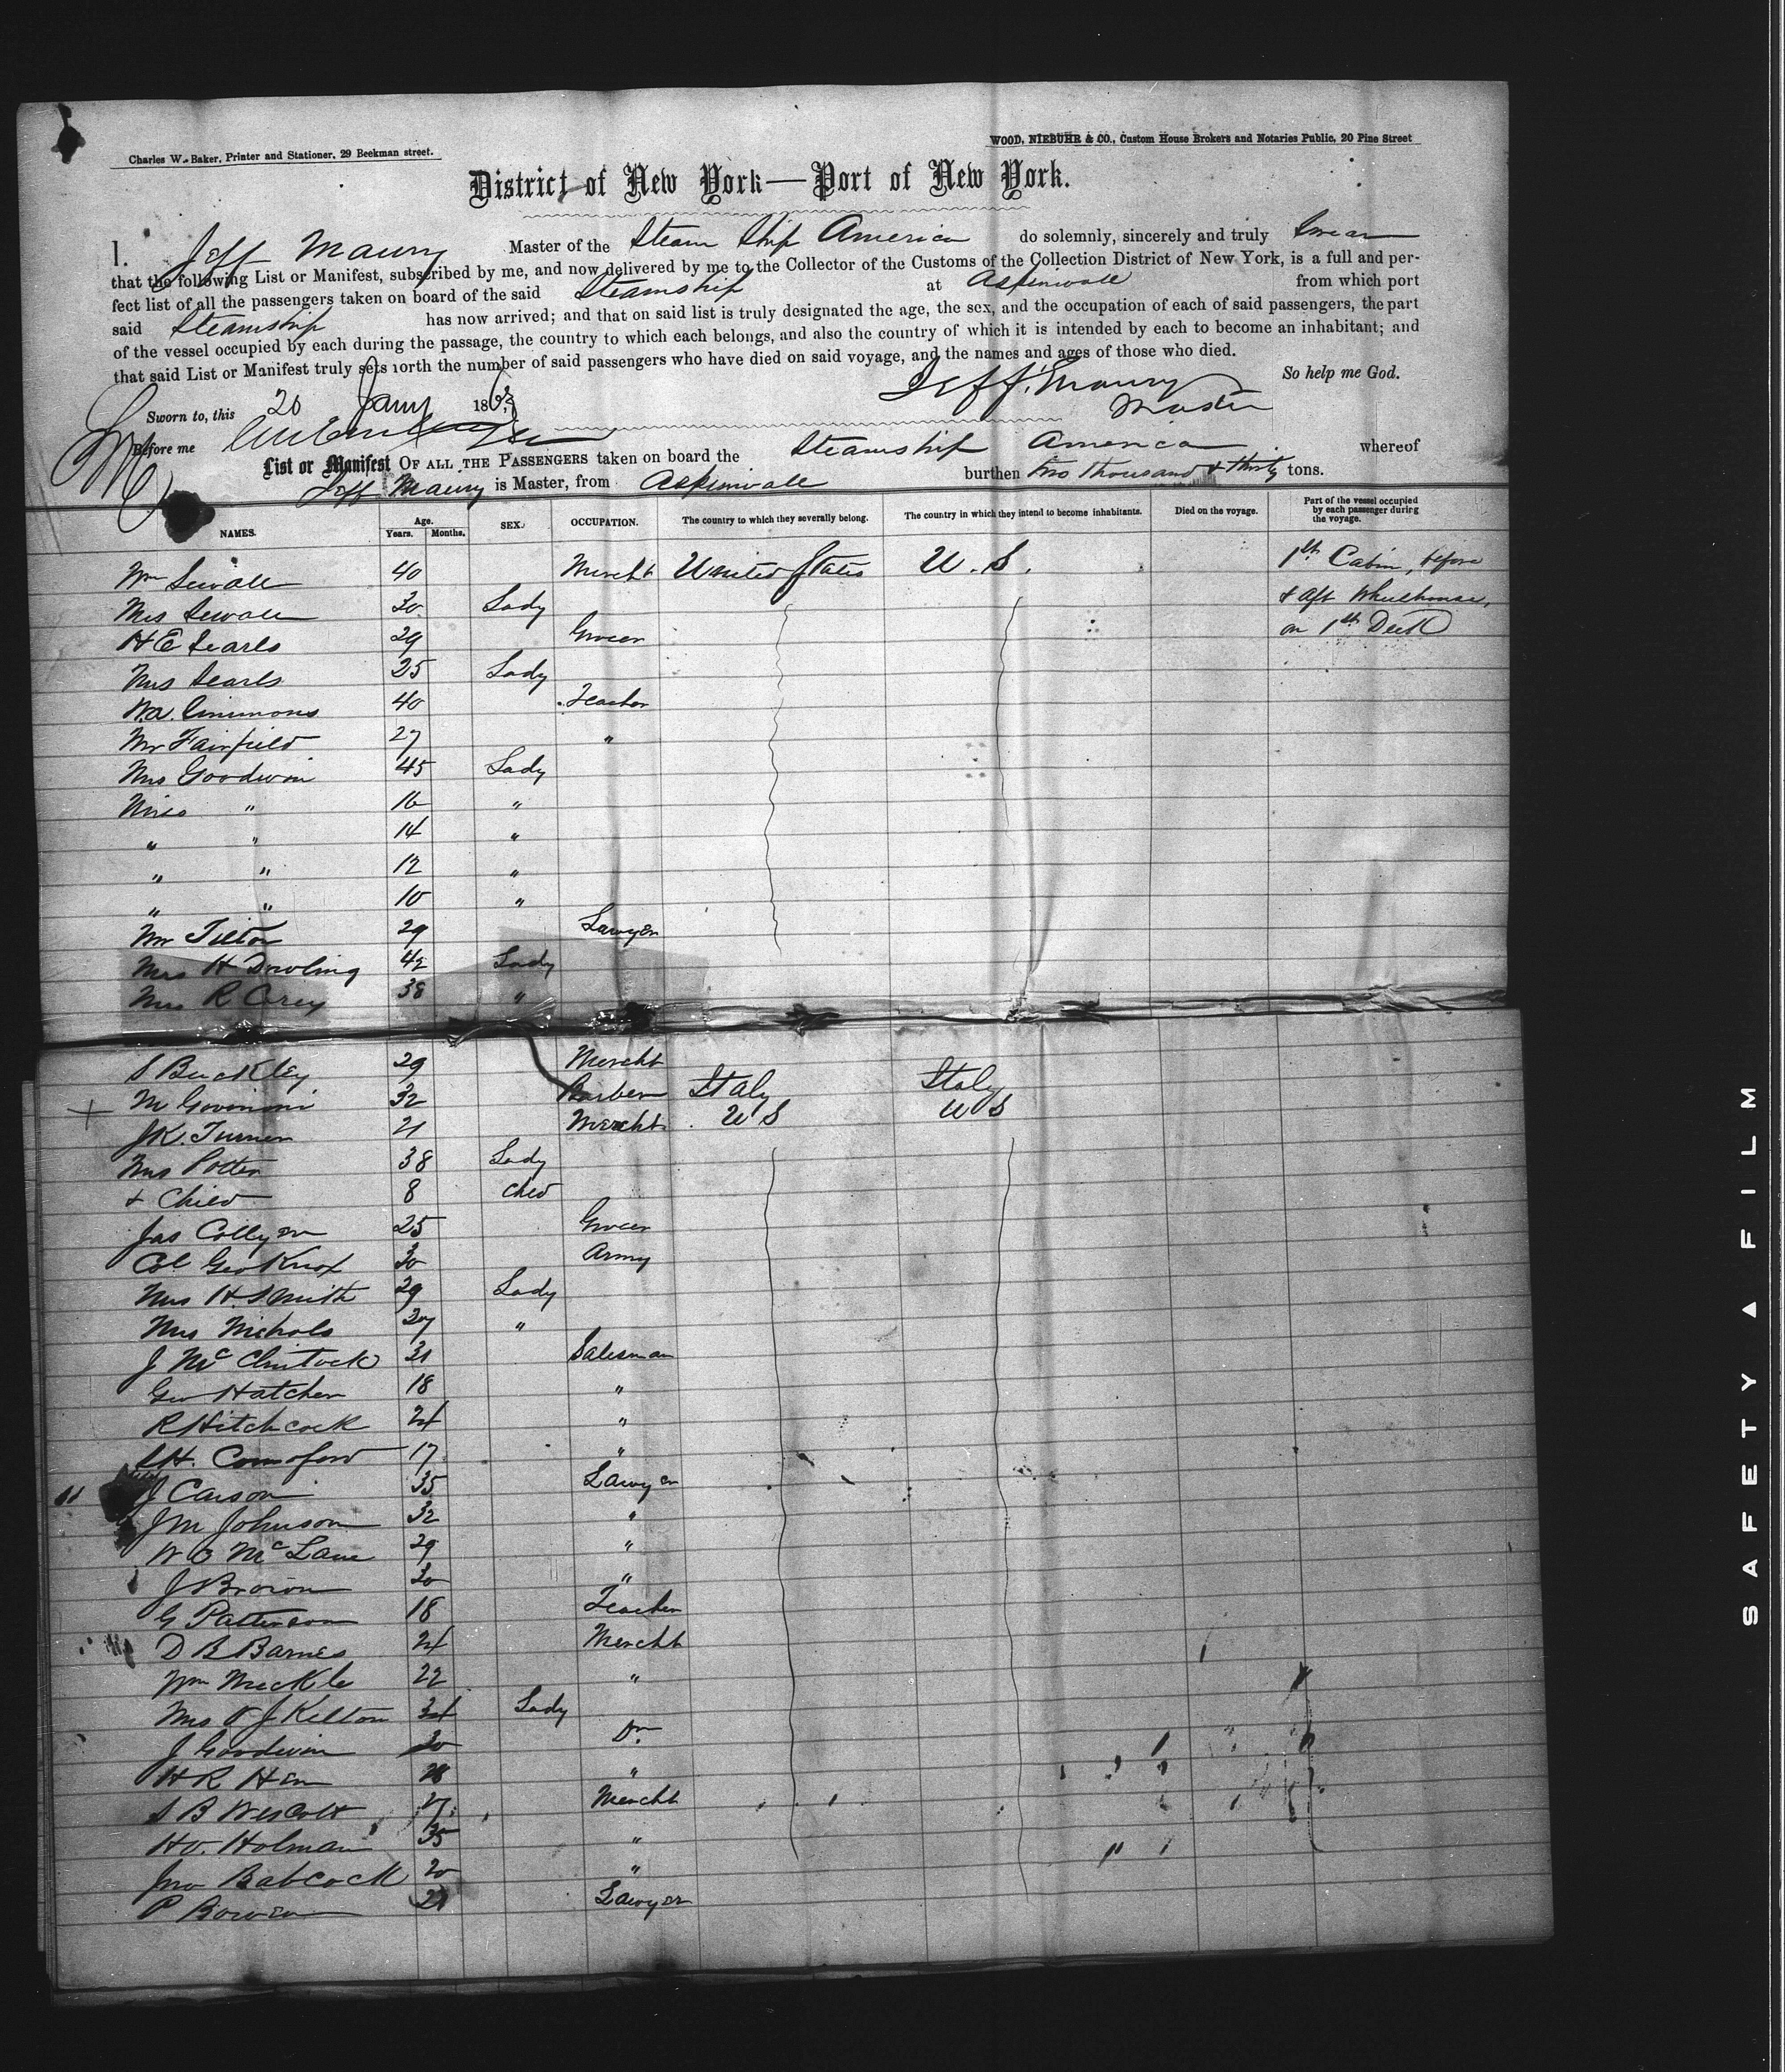 Charles W. Baker, Printer and Stationer, 29 Beekman street.
WOOD, NIEBUHR & CO., Custom House Brokers and Notaries Public, 20 Pine Street
District of New York—Port of New York.
I, Jeff Maury Master of the Steam Ship America do solemnly, sincerely and truly Swear
that the following List or Manifest, subscribed by me, and now delivered by me to the Collector of the Customs of the Collection District of New York, is a full and per-
fect list of all the passengers taken on board of the said Steamship at Aspinwall from which port
said Steamship has now arrived; and that on said list is truly designated the age, the sex, and the occupation of each of said passengers, the part
of the vessel occupied by each during the passage, the country to which each belongs, and also the country of which it is intended by each to become an inhabitant; and
that said List or Manifest truly sets forth the number of said passengers who have died on said voyage, and the names and ages of those who died.
So help me God.
Jeff. Maury
Master
Sworn to, this 20 Jany 186
Before me
List or Manifest OF ALL THE PASSENGERS taken on board the Steamship America whereof
Jeff Maury is Master, from Aspinwall burthen two thousand & thirty tons.
NAMES. Age. Years. Months. SEX. OCCUPATION. The country to which they severally belong. The country in which they intend to become inhabitants. Died on the voyage. Part of the vessel occupied by each passenger during the voyage.
Wm Sewall 40 Mercht United States U.S. 1st Cabin, before
Mrs Sewall 30 Lady & aft Wheelhouse,
H E Searls 29 Grocer on 1st Deck
Mrs Searls 25 Lady
W.A. Simmons 40 Teacher
Mr Fairfield 27 "
Mrs Goodwin 45 Lady
Miss " 16 "
" " 14 "
" " 12 "
" " 10 "
Mr Tilton 29 Lawyer
Mrs H Dowling 42 Lady
Mrs R Corey 38 "
S Buckley 29 Mercht
M 32 Barber Italy Italy
J K. Turner 21 Mercht U S U S
Mrs Potter 38 Lady
& Child 8 Chld
Jas Collyer 25 Grocer
Col Geo Knox 30 Army
Mrs H. Smith 29 Lady
Mrs Nichols 27 "
J McClintock 31 Salesman
Geo Hatcher 18 "
R Hitchcock 24 "
H. Comoford 17 "
J Carson 35 Lawyer
J M Johnson 32 "
W O McLane 29 "
J Brown 30 "
G Patterson 18 Teacher
D B Barnes 24 Mercht
Wm Meckle 22 "
Mrs O J Kelton 34 Lady
J Goodwin 30 Dr.
H R Hen 28 "
S B Wescott 27 Mercht
H O. Holman 35 "
Jno Babcock 20 "
P Bowen 21 Lawyer
SAFETY ▲ FILM